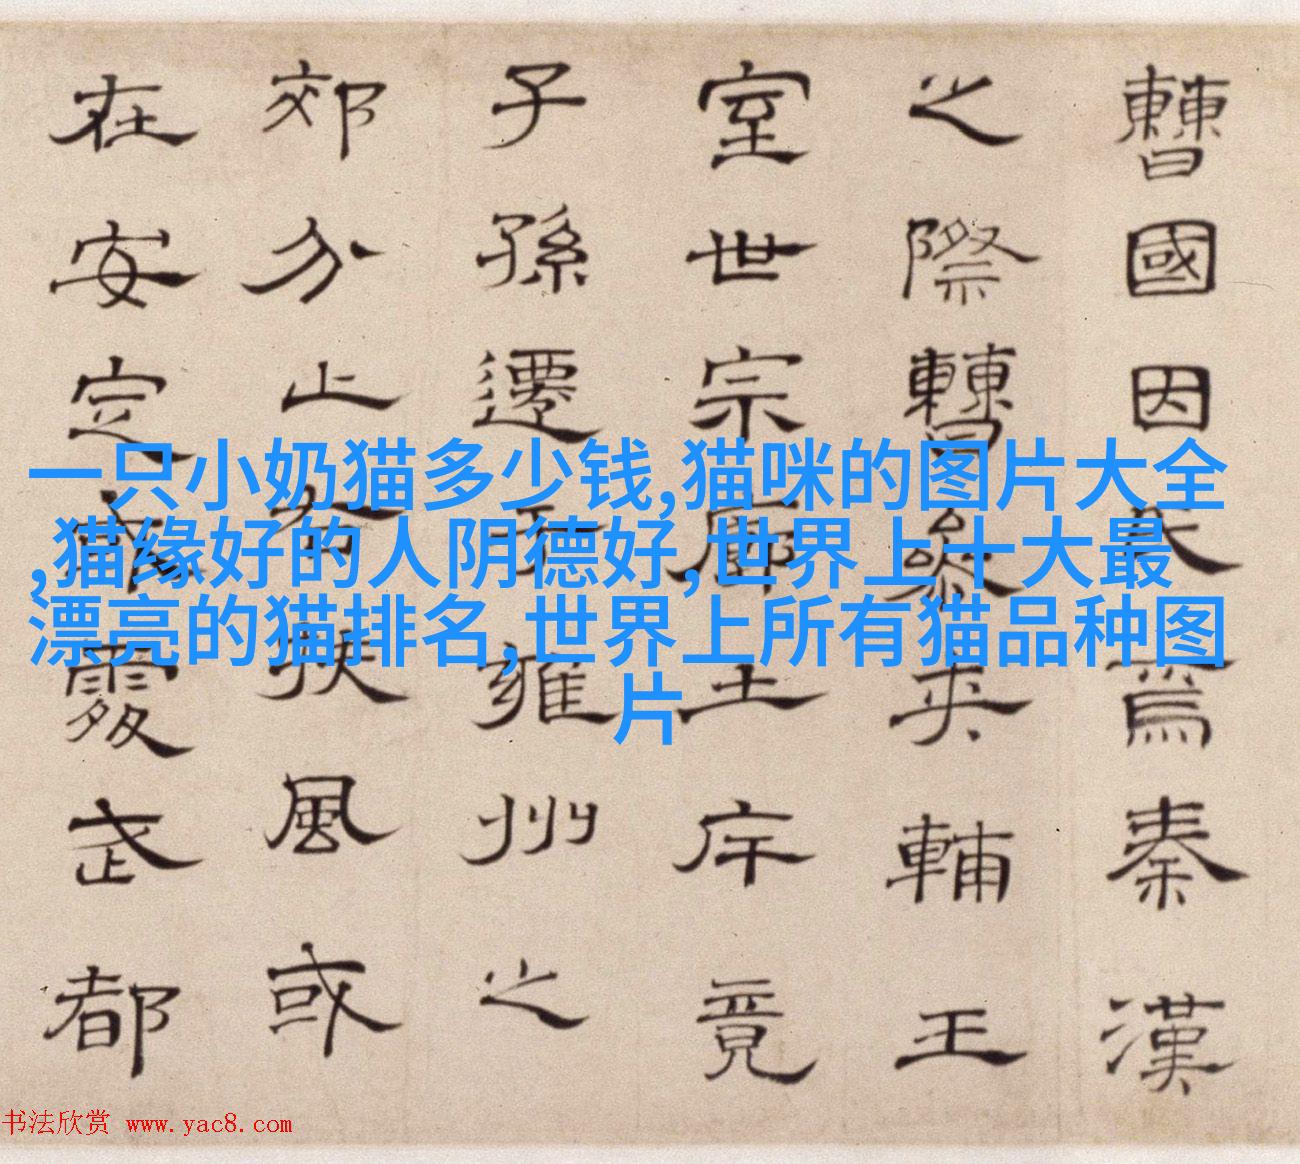 曹國因氏焉秦漢
之際曹參夾輔王
室世宗廓土斥竟
子孫遷于雍州之
郊分止右扶風或
在安定或處武都
一只小奶猫多少钱,猫咪的图片大全
,猫缘好的人阴德好,世界上十大最
漂亮的猫排名,世界上所有猫品种图
片
书法欣赏 www.yac8.com